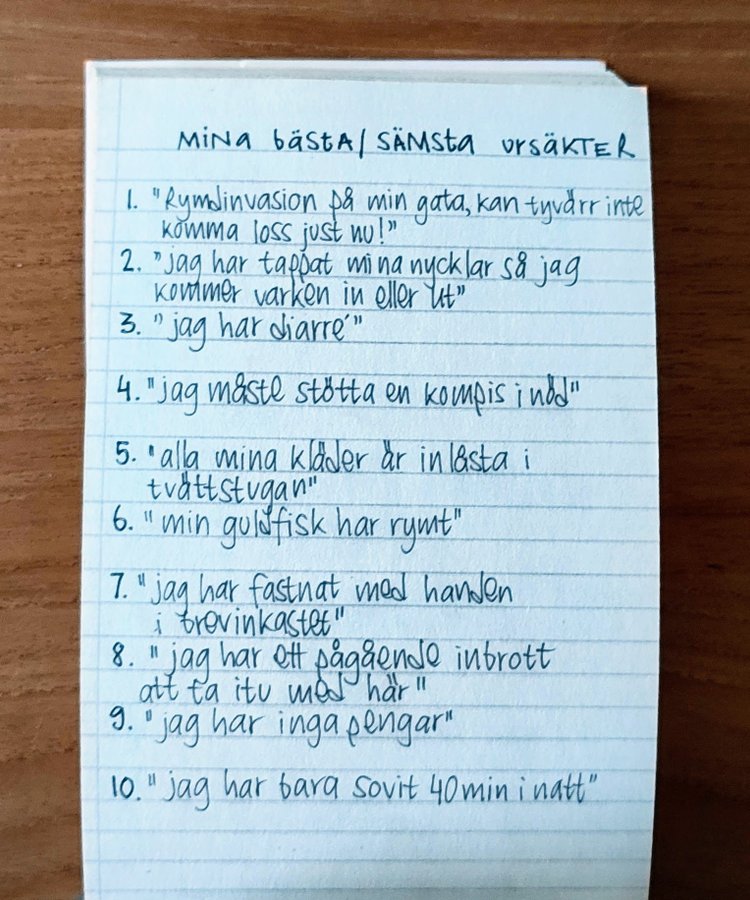 MINA bäSTA/SÄMSTA URSÄKTER
1. "Rymdinvasion på min gata, kan tyvärr inte
komma loss just nu!"
2. "jag har tappat mina nycklar så jag
kommer varken in eller ut"
3. "jag har diarre´"
4. "jag måste stötta en kompis i nöd"
5. "alla mina kläder är inlåsta i
tvättstugan"
6. "min guldfisk har rymt"
7. "jag har fastnat med handen
i brevinkastet"
8. "jag har ett pågående inbrott
att ta itu med här"
9. "jag har inga pengar"
10. "jag har bara sovit 40 min i natt"